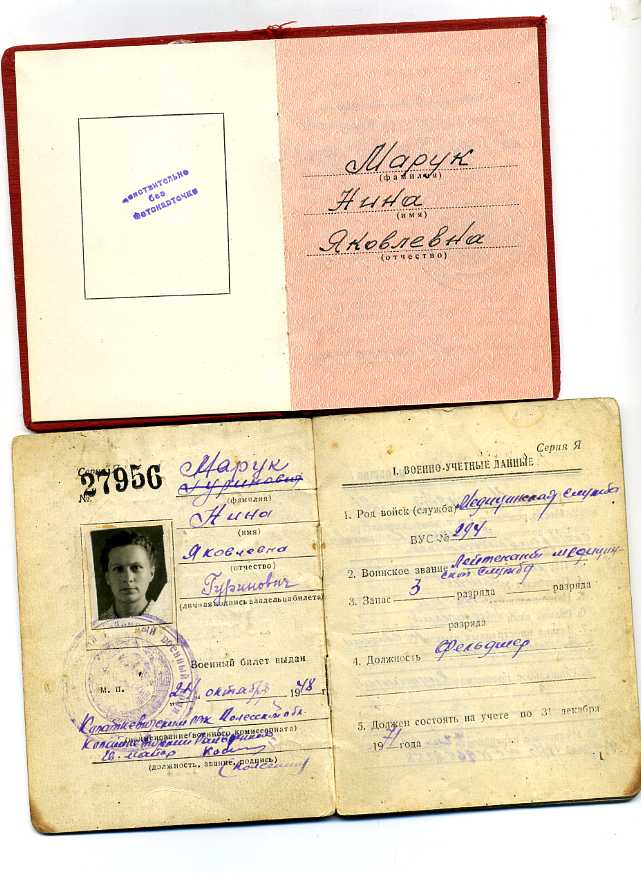 действительно
без
фотокарточки
Марук
(фамилия)
Нина
(имя)
Яковлевна
(отчество)
Серия
№ 27956
Марук
Гуринович
(фамилия)
Нина
(имя)
Яковлевна
(отчество)
Гуринович
(личная подпись владельца билета)
Военный билет выдан
М. П.
24 октября 1948 г.
Полесской обл.
(наименование военного комиссариата)
майор
(должность, звание, подпись)
Серия Я
I. ВОЕННО-УЧЕТНЫЕ ДАННЫЕ
1. Род войск (служба) Медицинская служба
ВУС № 294
2. Воинское звание Лейтенант медицин-
ской службы
3. Запас 3 разряда разряда
разряда
4. Должность Фельдшер
5. Должен состоять на учете по 31 декабря
1971 года